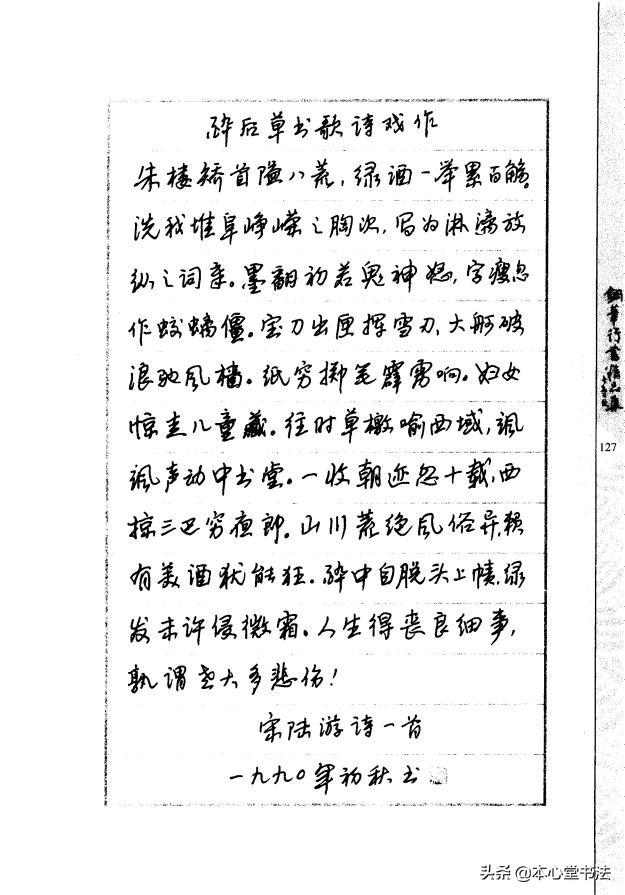 醉后草书歌诗戏作
朱楼矫首隘八荒,绿酒一举累百觞。
洗我堆阜峥嵘之胸次,写为淋漓放
纵之词章。墨翻初若鬼神怒,字瘦忽
作蛟螭僵。宝刀出匣挥雪刃,大舸破
浪驰风樯。纸穷掷笔霹雳响。妇女
惊走儿童藏。往时草檄喻西域,飒
飒声动中书堂。一收朝迹忽十载,西
掠三巴穷夜郎。山川荒绝风俗异,赖
有美酒犹能狂。醉中自脱头上帻,绿
发未许侵微霜。人生得丧良细事,
孰谓老大多悲伤!
宋陆游诗一首
一九九〇年初秋书
127
头条 @本心堂书法